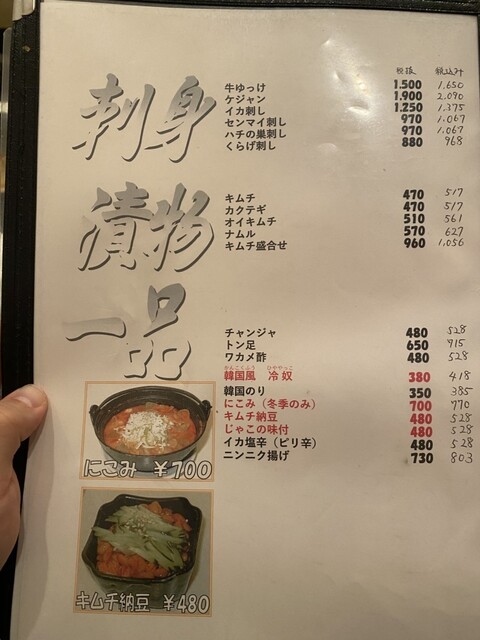 税抜 税込み
刺身
牛ゆっけ 1.500 1.650
ケジャン 1.900 2.090
イカ刺し 1.250 1.375
センマイ刺し 970 1.067
ハチの巣刺し 970 1.067
くらげ刺し 880 968
漬物
キムチ 470 517
カクテギ 470 517
オイキムチ 510 561
ナムル 570 627
キムチ盛合せ 960 1,056
一品
チャンジャ 480 528
トン足 650 715
ワカメ酢 480 528
かんこくふう ひややっこ
韓国風 冷奴 380 418
韓国のり 350 385
にこみ（冬季のみ） 700 770
キムチ納豆 480 528
じゃこの味付 480 528
イカ塩辛（ピリ辛） 480 528
ニンニク揚げ 730 803
にこみ ￥700
キムチ納豆 ￥480